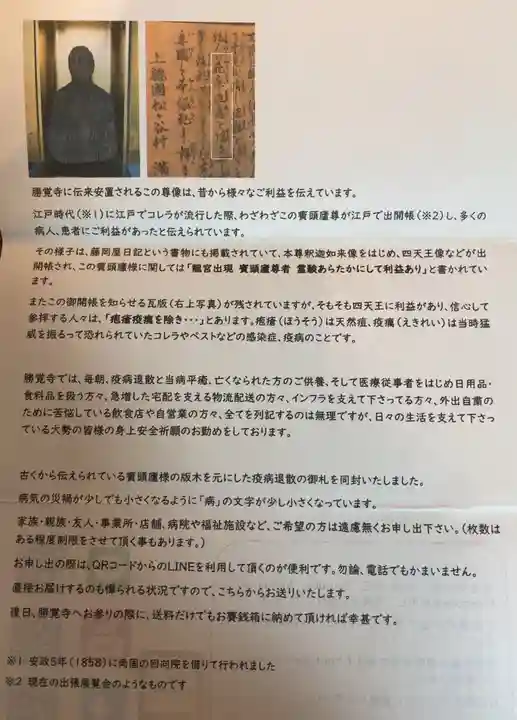 上総國松ヶ谷村
勝覚寺に伝来安置されるこの尊像は、昔から様々なご利益を伝えています。
江戸時代（※1）に江戸でコレラが流行した際、わざわざこの賓頭盧尊が江戸で出開帳（※2）し、多くの
病人、患者にご利益があったと伝えられています。
その様子は、藤岡屋日記という書物にも掲載されていて、本尊釈迦如来像をはじめ、四天王像などが出
開帳され、この賓頭盧様に関しては「龍宮出現 賓頭盧尊者 霊験あらたかにして利益あり」と書かれてい
ます。
またこの御開帳を知らせる瓦版（右上写真）が残されていますが、そもそも四天王に利益があり、信心して
参拝する人々は、「疱瘡疫癘を除き・・・」とあります。疱瘡（ほうそう）は天然痘、疫癘（えきれい）は当時猛
威を振るって恐れられていたコレラやペストなどの感染症、疫病のことです。
勝覚寺では、毎朝、疫病退散と当病平癒、亡くなられた方のご供養、そして医療従事者をはじめ日用品・
食料品を扱う方々、急増した宅配を支える物流配送の方々、インフラを支えて下さってる方々、外出自粛の
ために苦悩している飲食店や自営業の方々、全てを列記するのは無理ですが、日々の生活を支えて下さっ
ている大勢の皆様の身上安全祈願のお勤めをしております。
古くから伝えられている賓頭盧様の版木を元にした疫病退散の御札を同封いたしました。
病気の災禍が少しでも小さくなるように「病」の文字が少し小さくなっています。
家族・親族・友人・事業所・店舗、病院や福祉施設など、ご希望の方は遠慮無くお申し出下さい。（枚数は
ある程度制限をさせて頂く事もあります。）
お申し出の際は、QRコードからのLINEを利用して頂くのが便利です。勿論、電話でもかまいません。
直接お届けするのも憚られる状況ですので、こちらからお送りいたします。
後日、勝覚寺へお参りの際に、送料だけでもお賽銭箱に納めて頂ければ幸甚です。
※1 安政5年（1858）に両国の回向院を借りて行われました
※2 現在の出張展覧会のようなものです